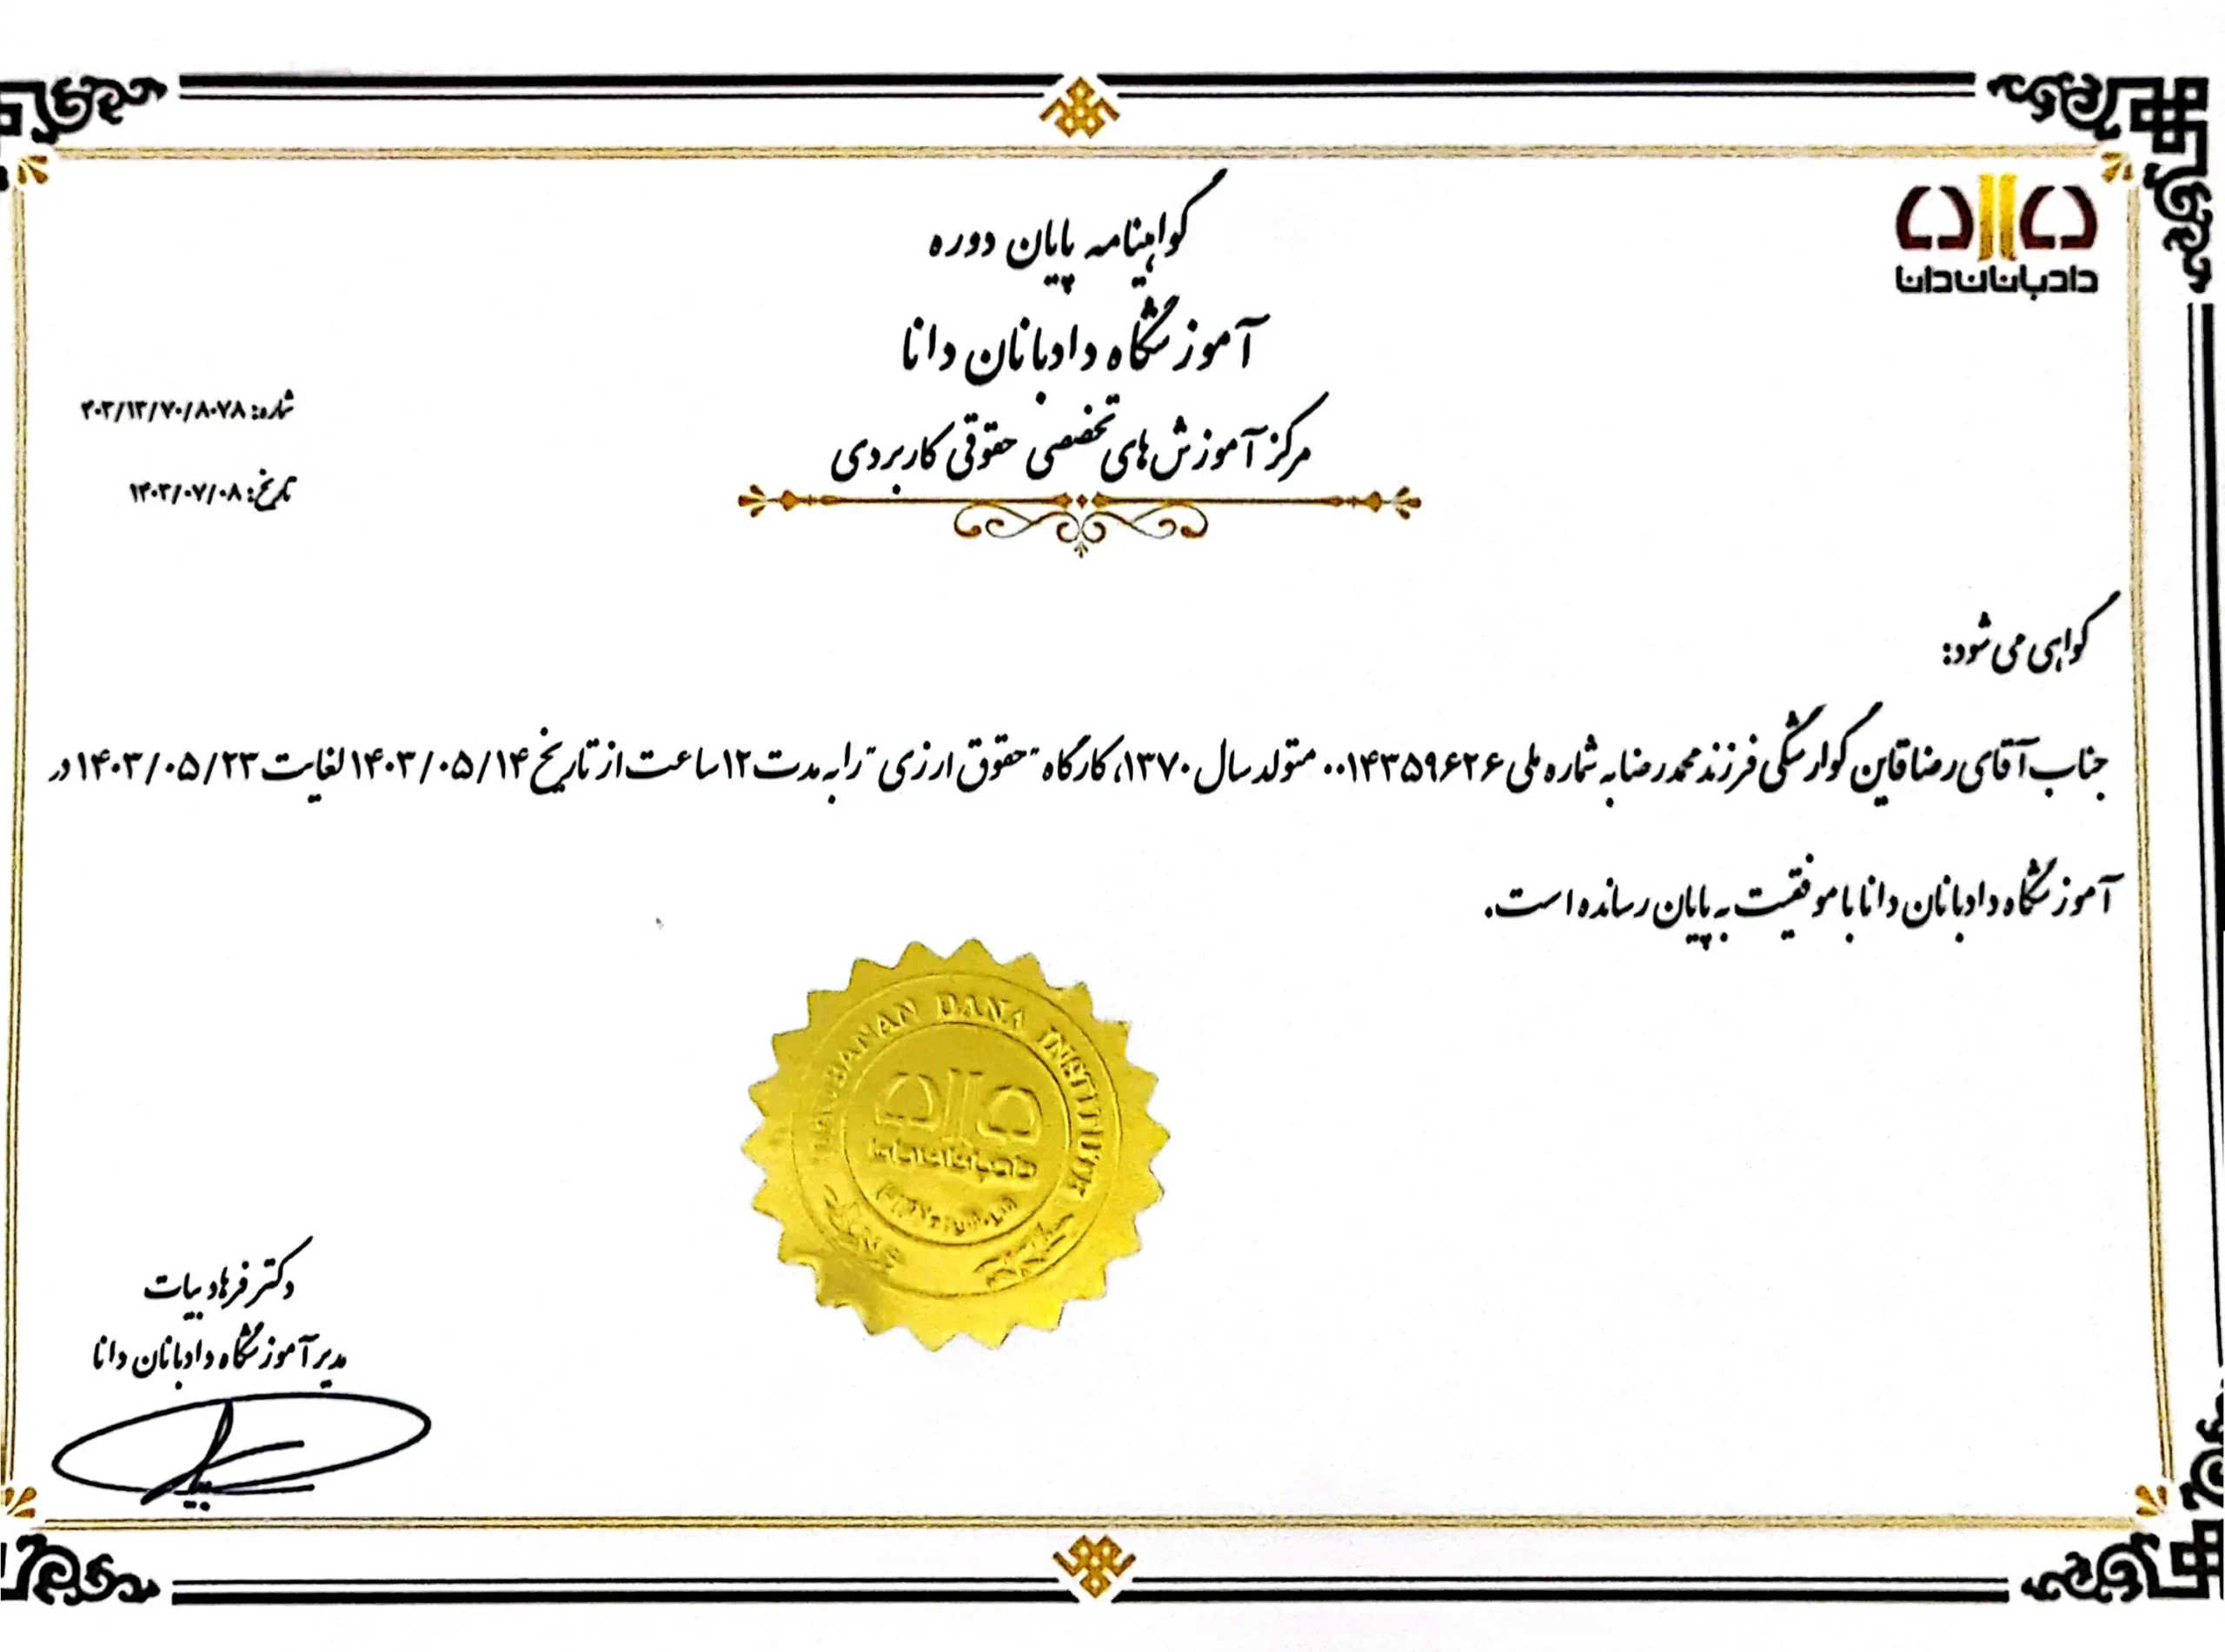 دادبانان دانا
گواهینامه پایان دوره
آموزشگاه دادبانان دانا
مرکز آموزش های تخصصی حقوقی کاربردی
شماره: ۴۰۳/۱۳/۷۰/۸۰۷۸
تاریخ: ۱۴۰۳/۰۷/۰۸
گواهی می شود:
جناب آقای رضا قاین گوارشگی فرزند محمدرضا به شماره ملی ۰۰۱۴۳۵۹۶۲۶ متولد سال ۱۳۷۰، کارگاه "حقوق ارزی" را به مدت ۱۲ ساعت از تاریخ ۱۴۰۳/۰۵/۱۴ لغایت ۱۴۰۳/۰۵/۲۳ در
آموزشگاه دادبانان دانا با موفقیت به پایان رسانده است.
DADBANAN DANA INSTITUTE
دادبانان دانا
دکتر فرهاد بیات
مدیر آموزشگاه دادبانان دانا